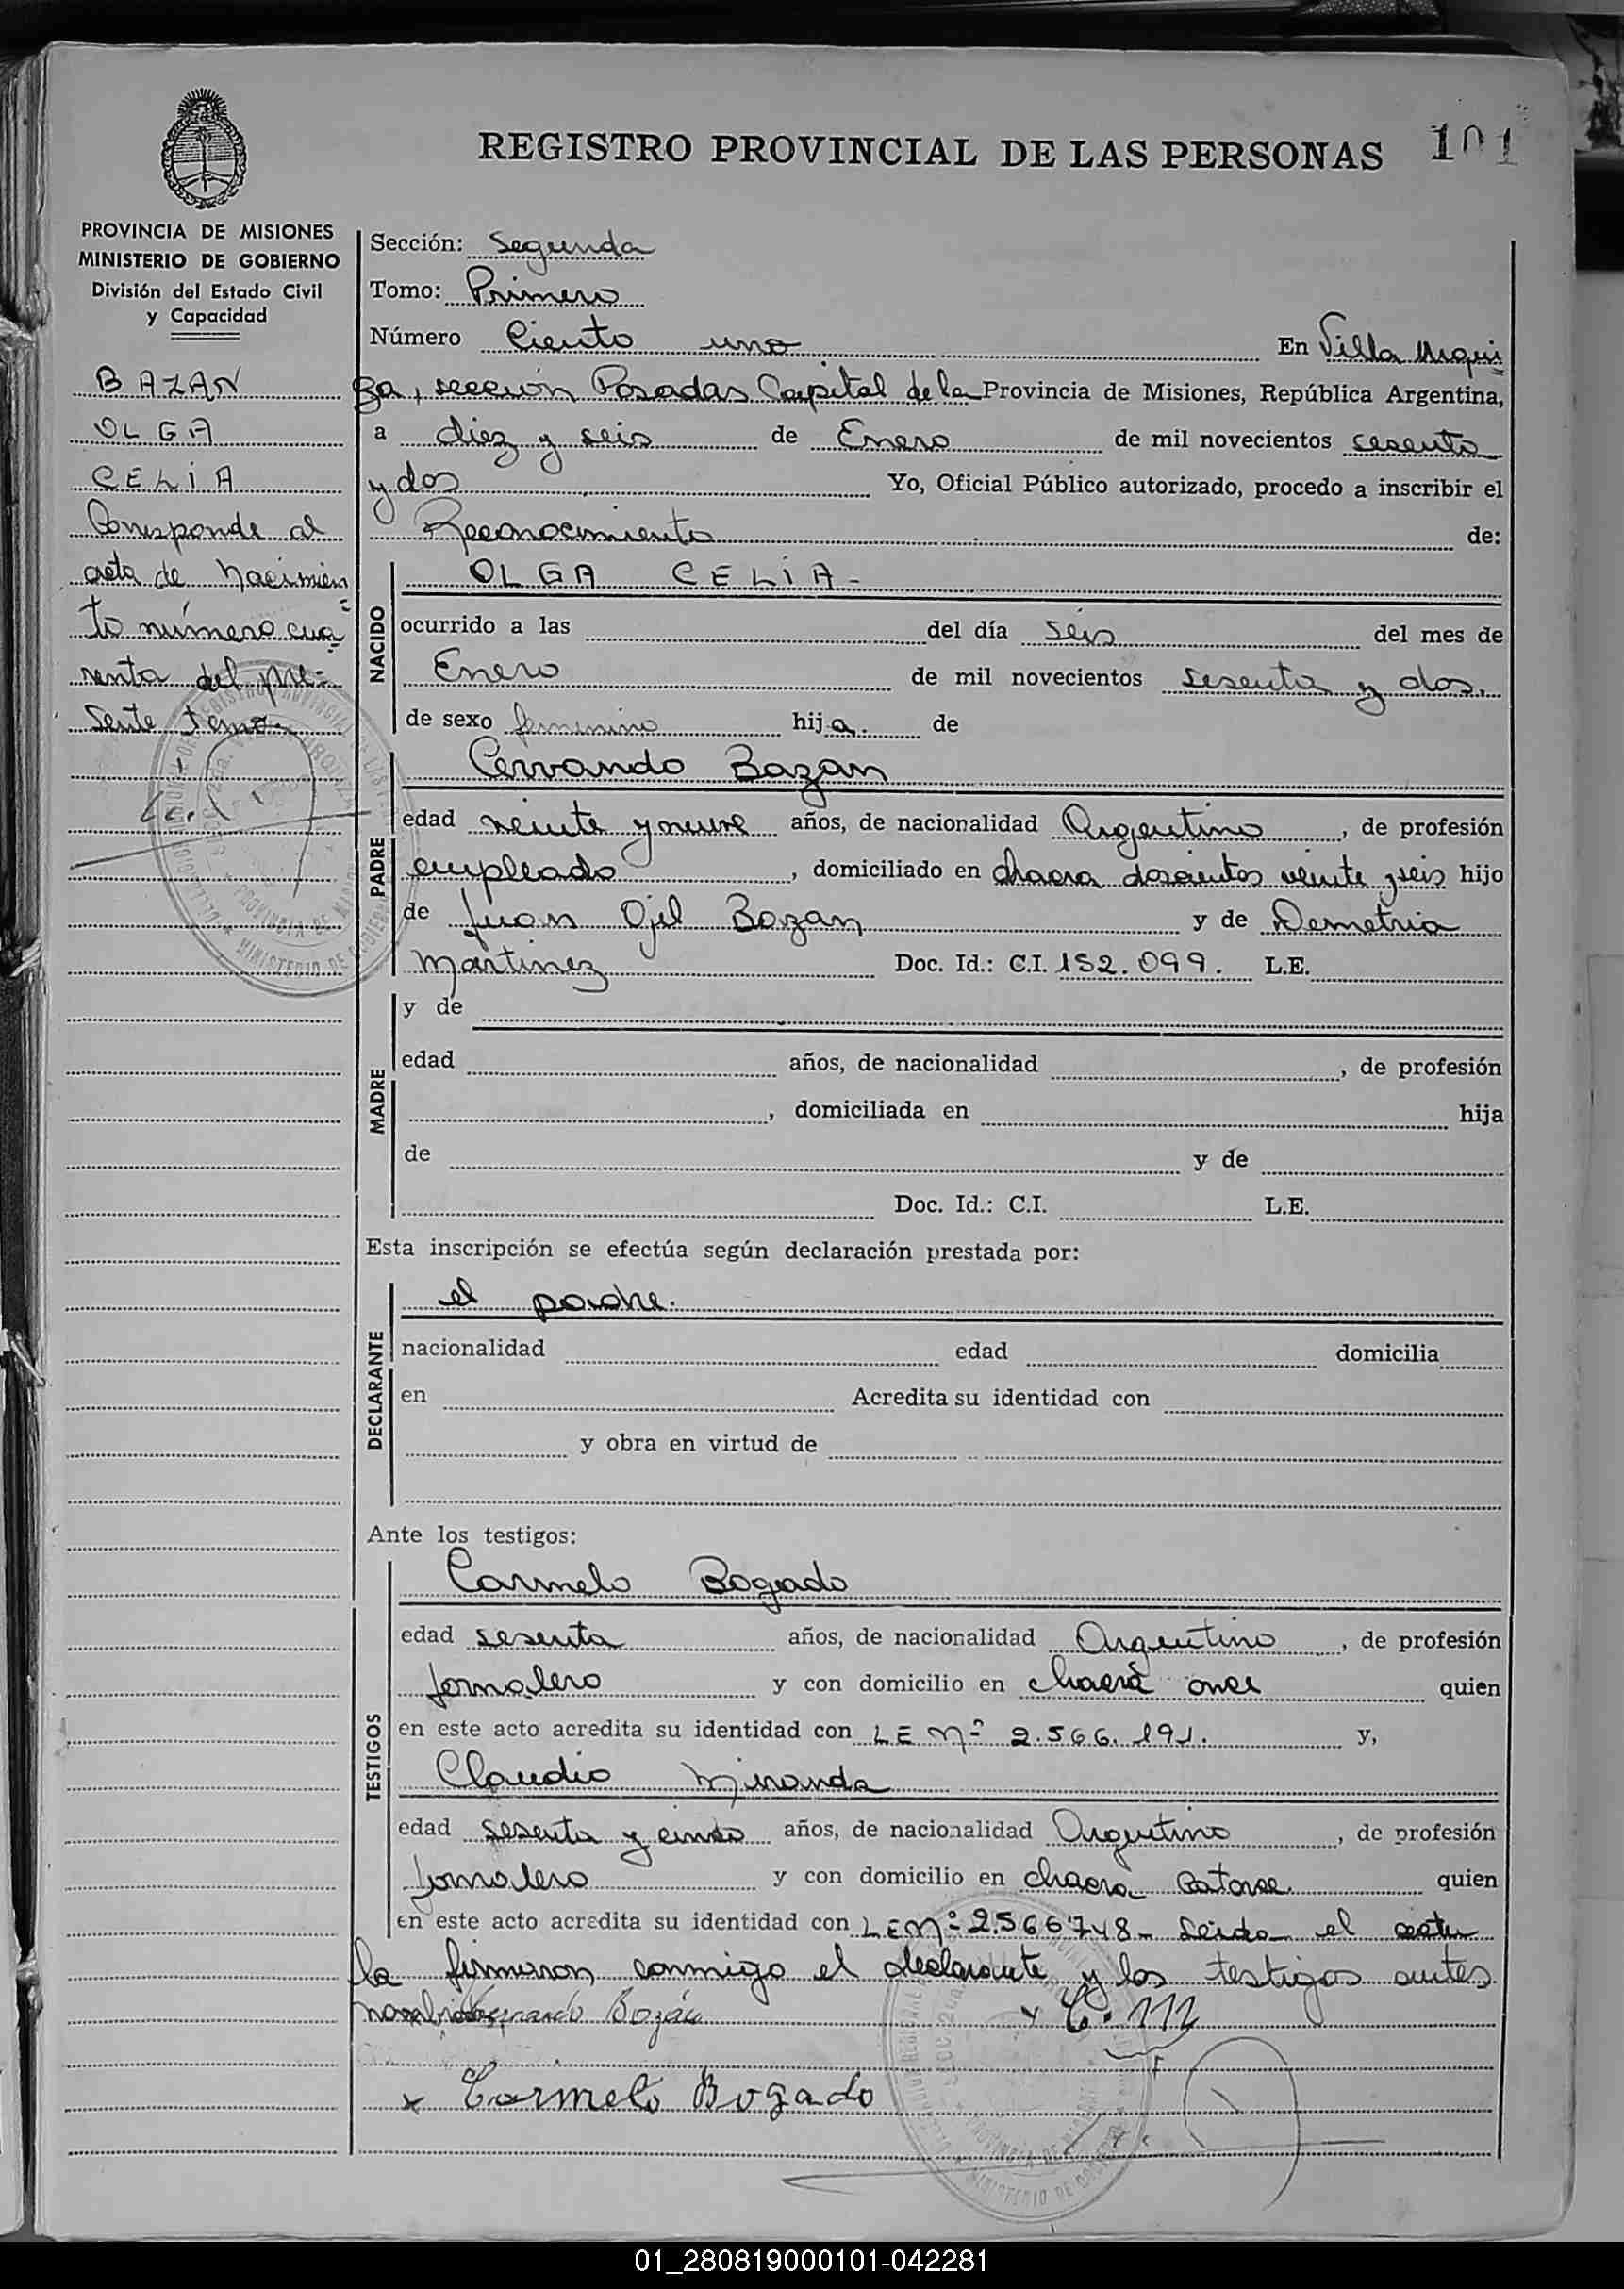 REGISTRO PROVINCIAL DE LAS PERSONAS 101
PROVINCIA DE MISIONES
MINISTERIO DE GOBIERNO
División del Estado Civil
y Capacidad
BAZAN
OLGA
CELIA
Corresponde al
acta de Nacimien
to número cua
renta del pre-
sente tomo.
Sección: Segunda
Tomo: Primero
Número Ciento uno En Villa Urqui
za, sección Posadas Capital de la Provincia de Misiones, República Argentina,
a diez y seis de Enero de mil novecientos sesenta
y dos Yo, Oficial Público autorizado, procedo a inscribir el
Reconocimiento de:
NACIDO
OLGA CELIA-
ocurrido a las del día seis del mes de
Enero de mil novecientos sesenta y dos.
de sexo femenino hija. de
PADRE
Cervando Bazan
edad veinte y nueve años, de nacionalidad Argentino, de profesión
empleado, domiciliado en chacra doscientos veinte y seis hijo
de Juan Bazan y de Demetria
Martinez Doc. Id.: C.I. 152.099. L.E.
MADRE
y de
edad años, de nacionalidad , de profesión
, domiciliada en hija
de y de
Doc. Id.: C.I. L.E.
Esta inscripción se efectúa según declaración prestada por:
DECLARANTE
el padre.
nacionalidad edad domicilia
en Acredita su identidad con
y obra en virtud de
Ante los testigos:
TESTIGOS
Carmelo Bogado
edad sesenta años, de nacionalidad Argentino, de profesión
Jornalero y con domicilio en chacra once quien
en este acto acredita su identidad con LE Nº 2.566.191. y,
Claudio Miranda
edad sesenta y cinco años, de nacionalidad Argentino, de profesión
Jornalero y con domicilio en chacra catorce quien
en este acto acredita su identidad con LE Nº 2.566748- Leida el acta
la firmaron conmigo el declarante y los testigos antes
Bozán
x Carmelo Bogado
01_280819000101-042281